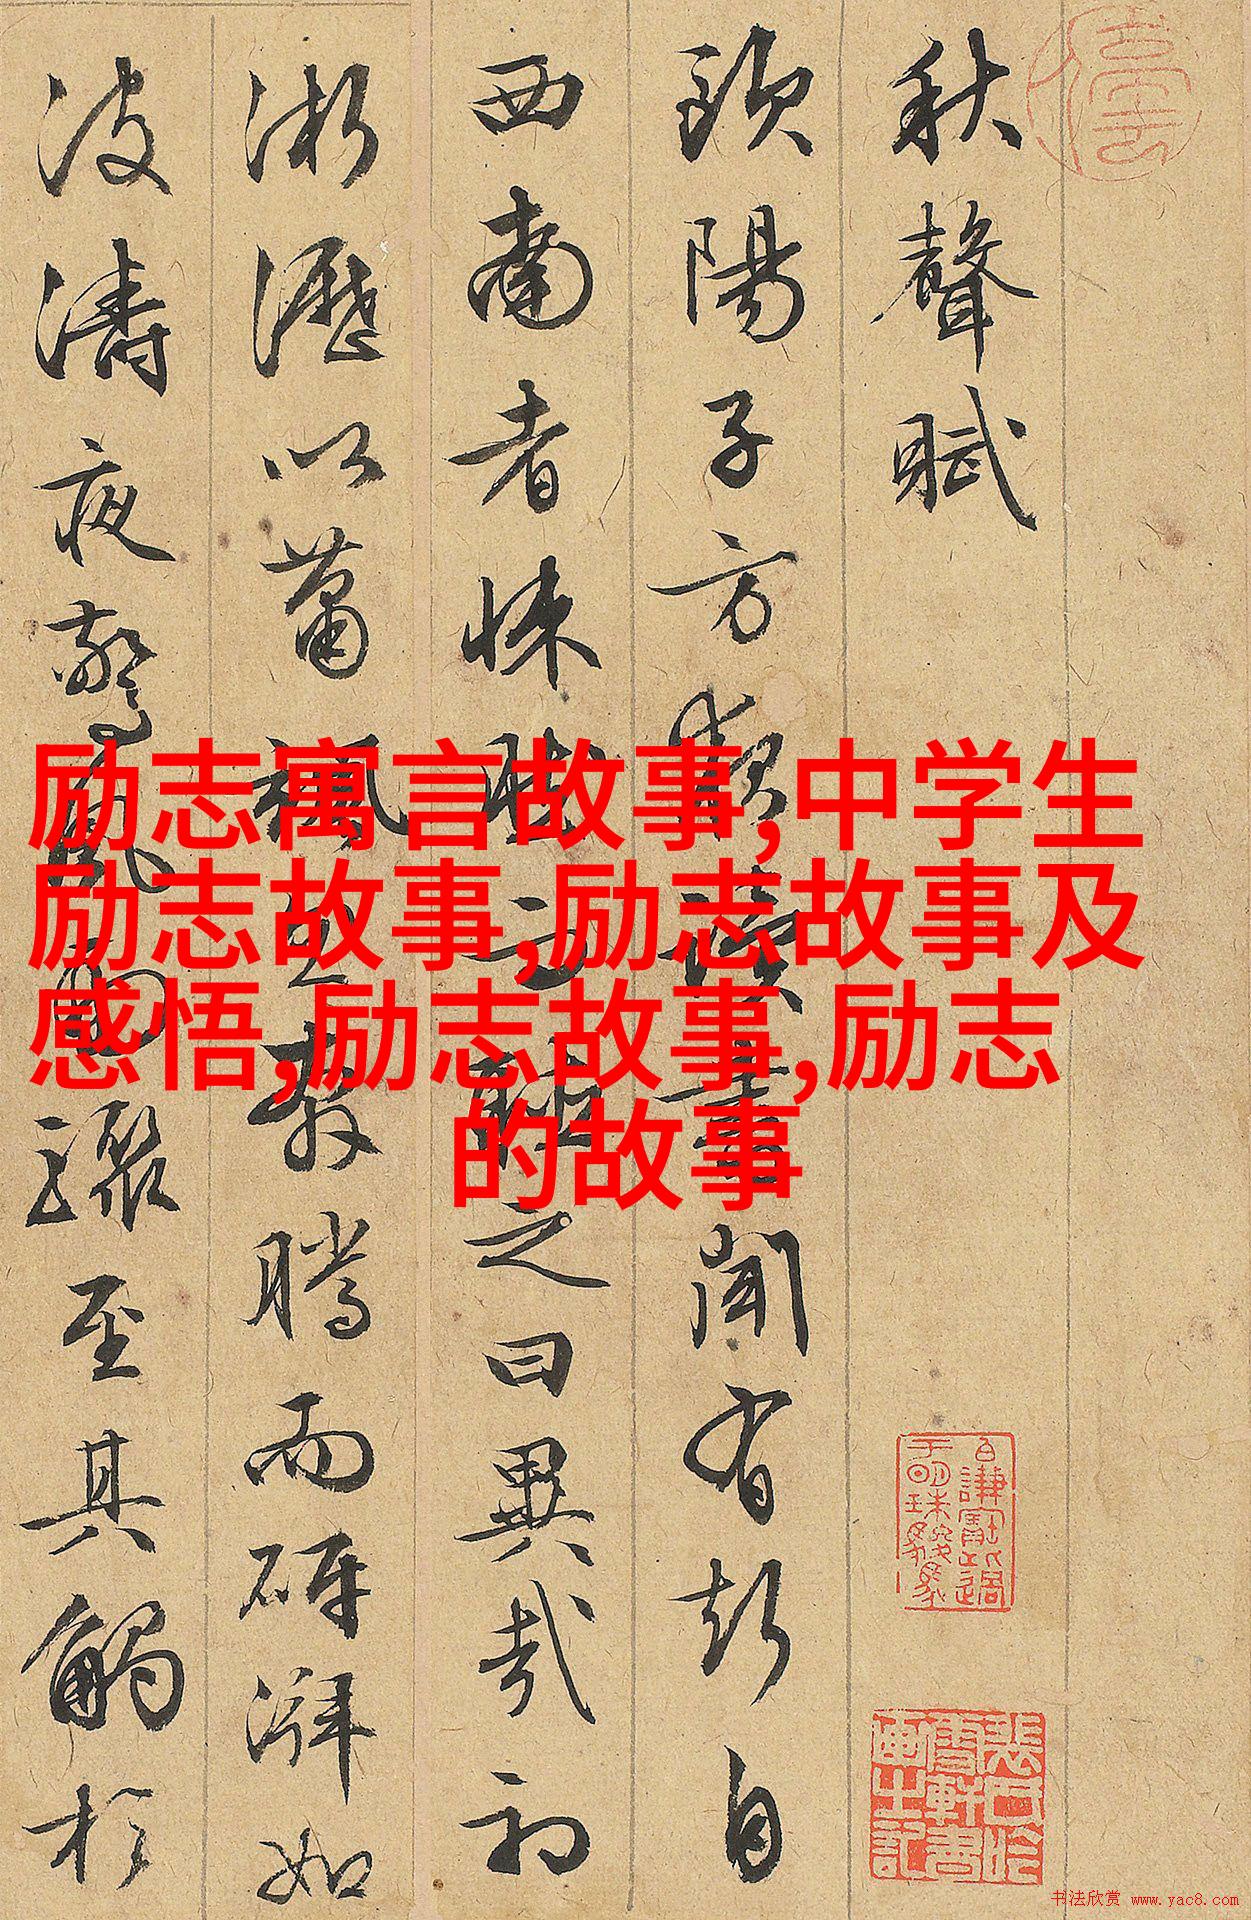 秋聲賦
歐陽子方夜讀書聞有聲自
西南者悚然而聽之曰異哉初
淅瀝以蕭颯忽奔騰而砰湃如
波濤夜驚風雨驟至其觸於
励志寓言故事,中学生
励志故事,励志故事及
感悟,励志故事,励志
的故事
书法欣赏 www.yac8.com